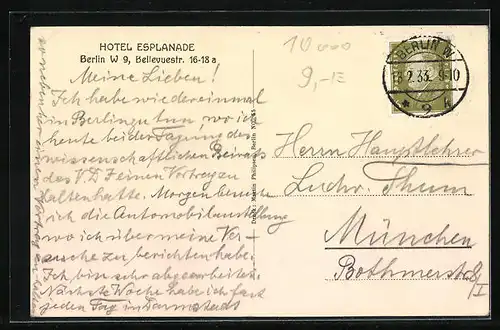 HOTEL ESPLANADE
Berlin W 9, Bellevuestr. 16-18 a
Meine Lieben!
Ich habe wieder einmal
in Berlin zu tun, wo ich
heute bei der Tagung des
wissenschaftlichen Beirats
des V.D.I einen Vortrag zu
halten hatte. Morgen besuche
ich die Automobilausstellung
wo ich über meine Ver-
suche zu berichten habe.
Ich bin sehr abgearbeitet.
Nächste Woche habe ich fast
jeden Tag in Darmstadt
einen Vortrag
10 000
9,-
BERLIN W
2.33. 9-10
* 9 k
Herrn Hauptlehrer
Ludw. Thum
München
Bothmerstr. 8/I